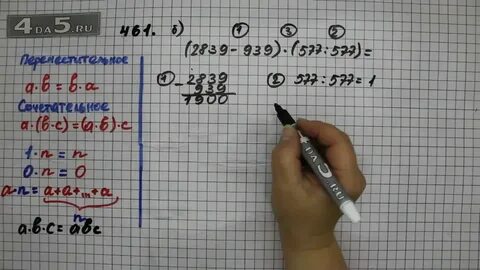 4DA5.RU
461. б) ① ③ ②
(2839 - 939) · (577 : 577) =
Переместительное
a·b = b·a
Сочетательное
a·(b·c) = (a·b)·c
1·n = n
0·n = 0
a·n = a+a+...+a
n
a·b·c = abc
① - 2839
939
1900
② 577 : 577 = 1
4DA5.RU